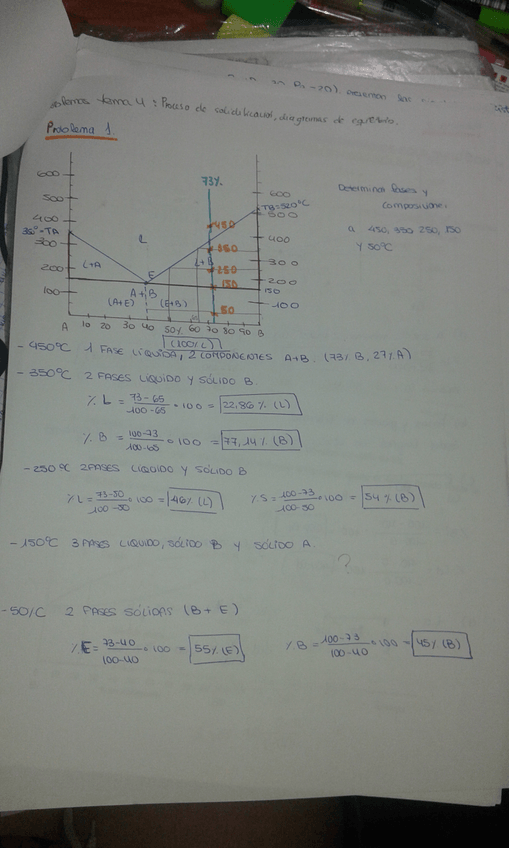 Problemas tema 4: Proceso de solidificación, diagramas de equilibrio.
Problema 1.
73%
600
500
400
300
200
100
L
L+A
L+B
E
A+B
(A+E)
(E+B)
450
350
250
150
50
600
TB=520°C
500
400
300
200
150
100
A 10 20 30 40 50% 60 70 80 B
(100% L)
Determinar fases y
composiciones.
a 450, 350, 250, 150
y 50°C
- 450°C 1 FASE LÍQUIDA, 2 COMPONENTES A+B. (73% B, 27% A)
- 350°C 2 FASES LÍQUIDO Y SÓLIDO B.
% L = 73-65 / 100-65 · 100 = 22,86% (L)
% B = 100-73 / 100-65 · 100 = 77,14% (B)
- 250°C 2 FASES LÍQUIDO Y SÓLIDO B
% L = 73-50 / 100-50 · 100 = 46% (L)
% S = 100-73 / 100-50 · 100 = 54% (B)
- 150°C 3 FASES LÍQUIDO, SÓLIDO B Y SÓLIDO A.
?
- 50°C 2 FASES SÓLIDAS (B+E)
% E = 73-40 / 100-40 · 100 = 55% (E)
% B = 100-73 / 100-40 · 100 = 45% (B)